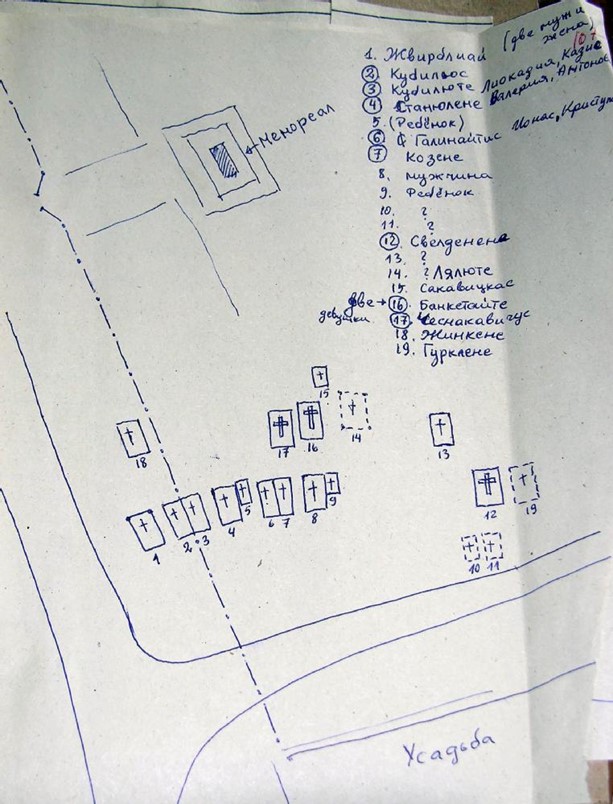 1. Жвирблиай (две мужи
жена)
② Кубилюс
③ Кубилюте Лиокадия, Казис
④ Станюлене Валерия, Антонос
5. (Ребёнок)
⑥ Галинайтис Ионас, Криступ
⑦ Козене
8. мужчина
9. Ребёнок
10. ?
11. ?
⑫. Свелденене
13. ?
14. ? Лялюте
15. Сакавицкас
две → ⑯. Банкетайте
девушки ⑰. Чеснакавичус
18. Жинкене
19. Гурклене
← Менореал
15
18
17
16
14
13
1
2 • 3
4
5
6
7
8
9
12
19
10
11
Усадьба